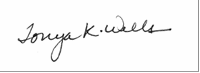 Tonya K. Wells